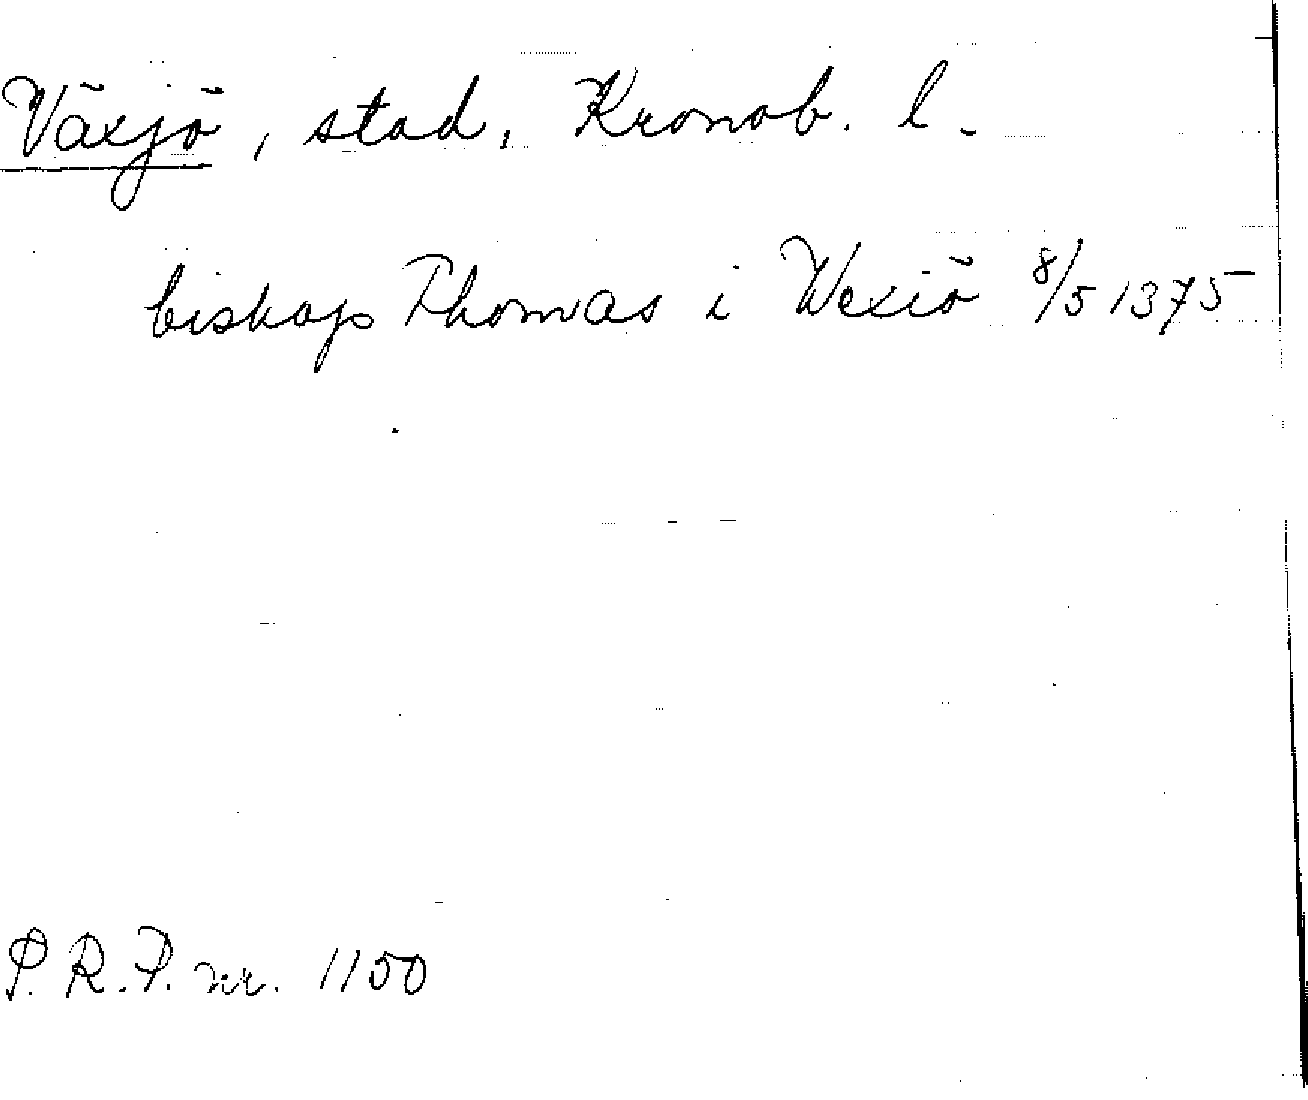 Växjö, stad, Kronob. l.
biskop Thomas i Wexiö 8/5 1375
S.R.P. nr. 1150